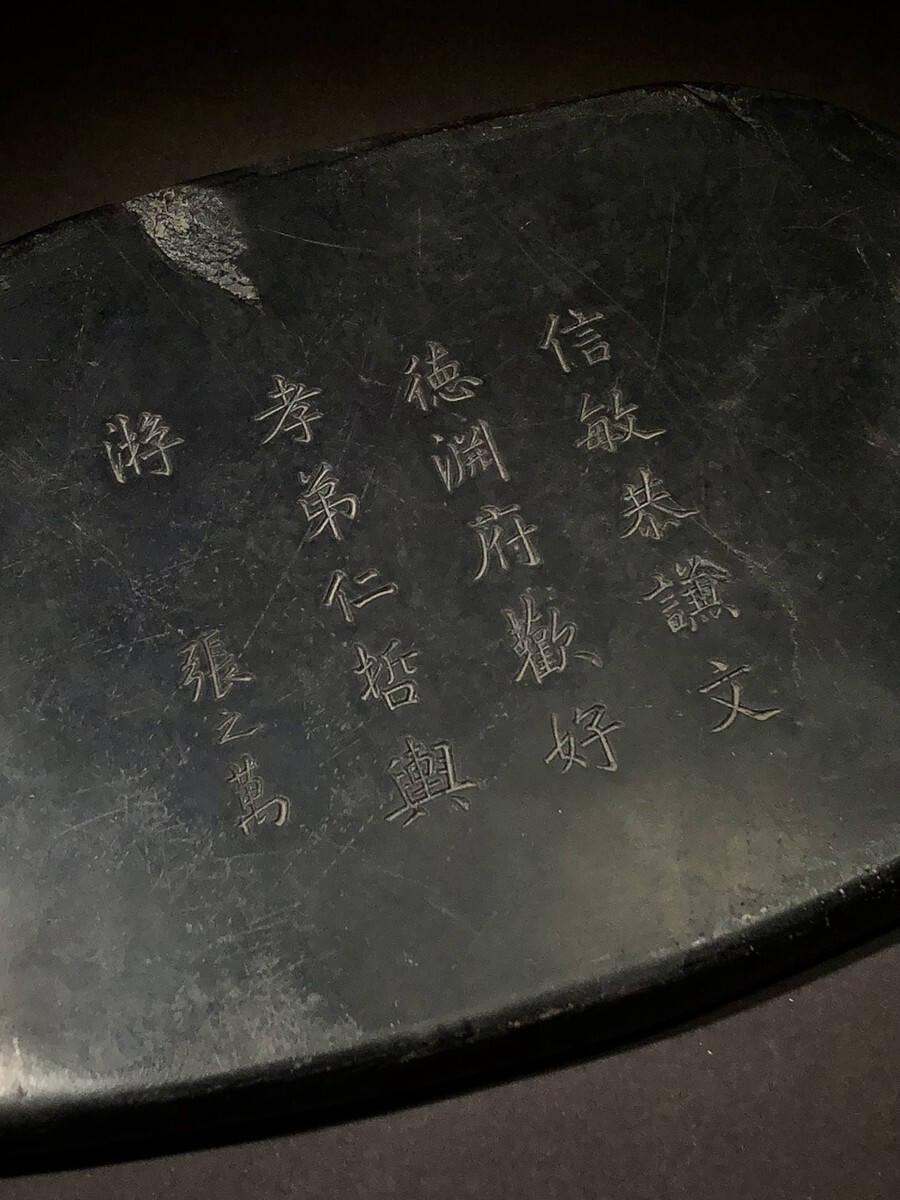 信敏恭謙文
德淵府歡好
孝弟仁哲輿
游
張之萬